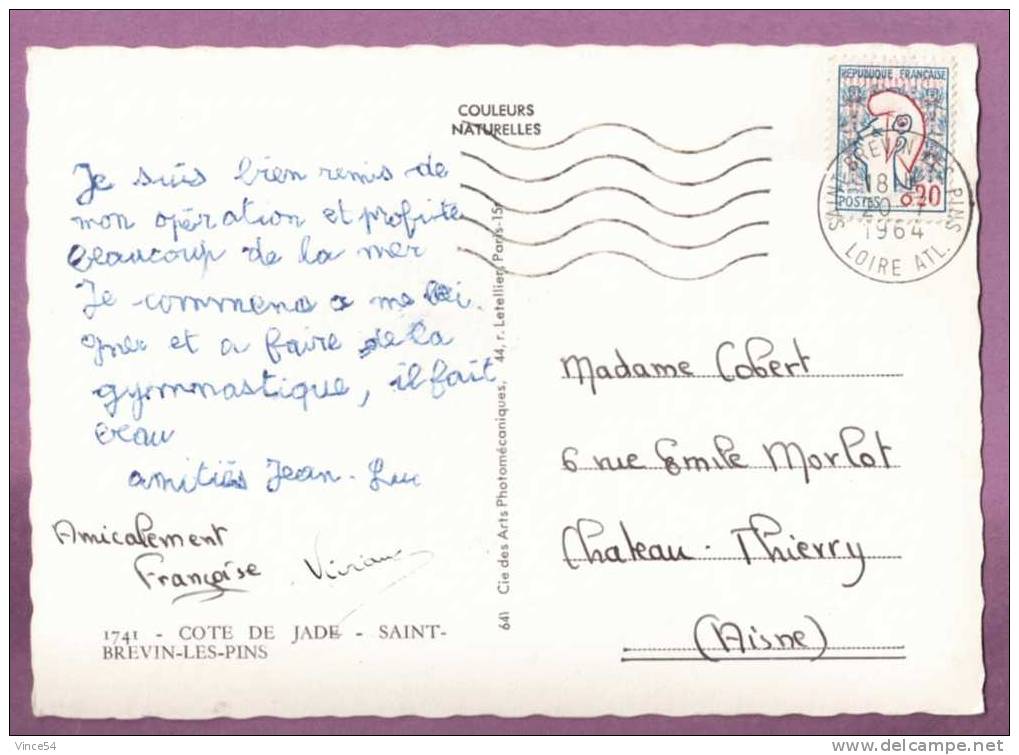 COULEURS
NATURELLES
Je suis bien remis de
mon opération et profite
beaucoup de la mer
Je commence a me bai
gner et a faire de la
gymnastique, il fait
beau
amitiés Jean-Luc
Amicalement
Françoise Viviane
1741 - COTE DE JADE - SAINT-
BREVIN-LES-PINS
641 Cie des Arts Photomécaniques, 44, r. Letellier, Paris-15e
REPUBLIQUE FRANÇAISE
POSTES 0,20
SAINT-BREVIN-LES-PINS
18H
20
1964
LOIRE ATL.
Madame Cobert
6 rue Emile Morlot
Chateau-Thierry
(Aisne)
Vince54
www.delcampe.net